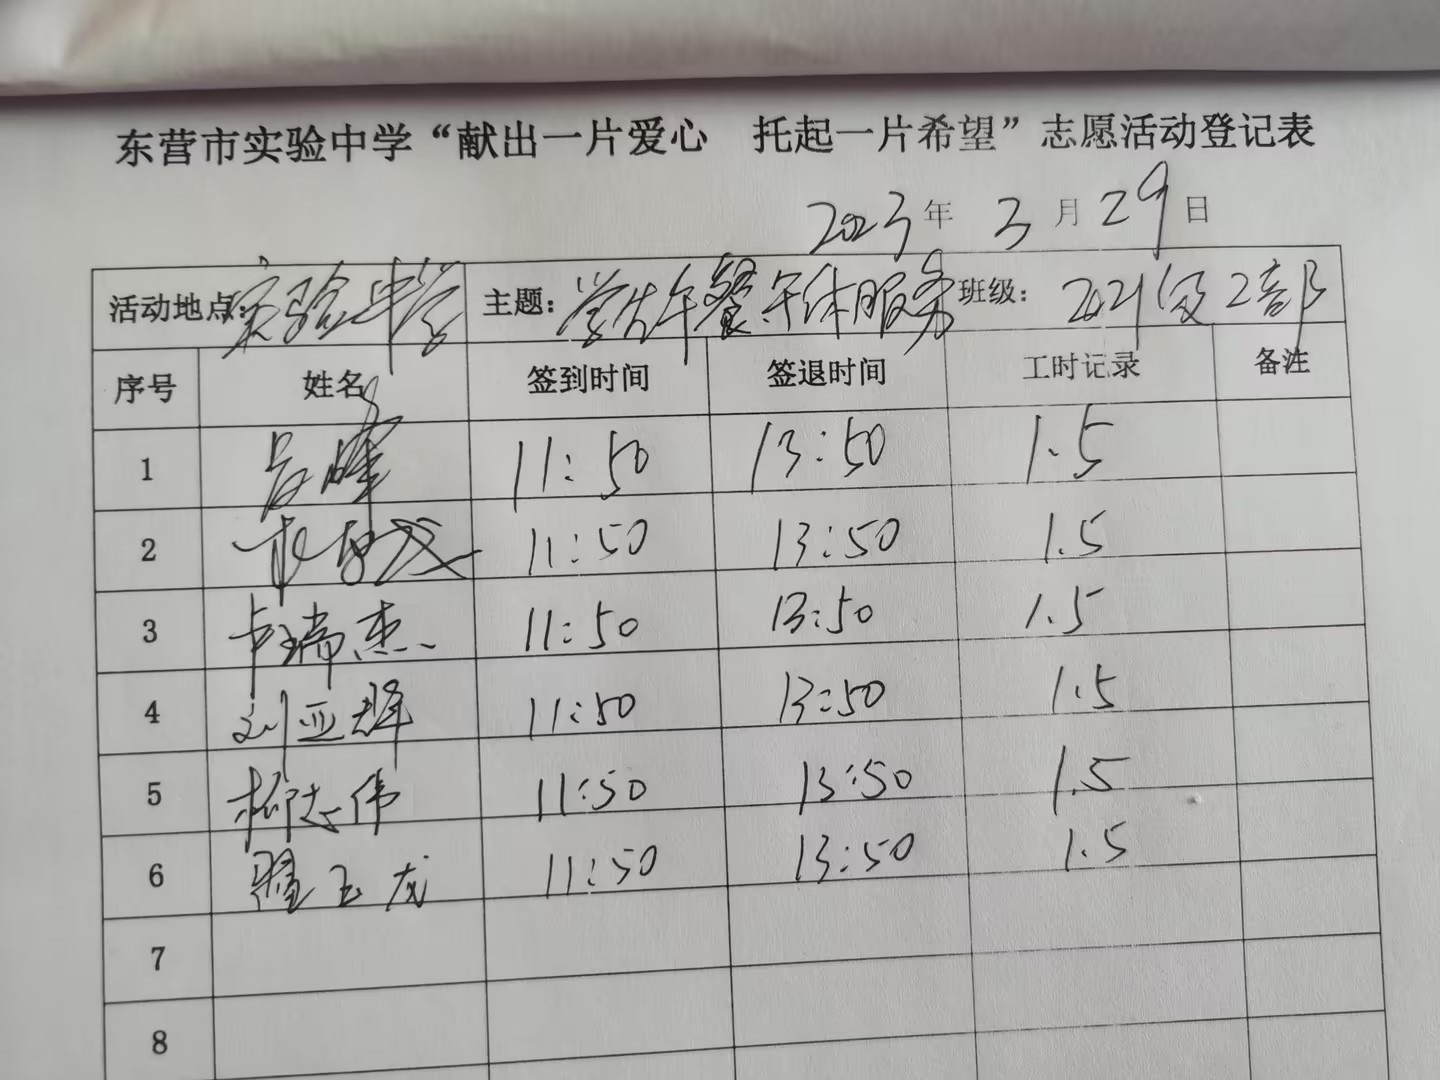 东营市实验中学“献出一片爱心 托起一片希望”志愿活动登记表
2023年 3月29日
活动地点:实验中学 主题:学生午餐午休服务 班级:2021级2部
序号 姓名 签到时间 签退时间 工时记录 备注
1 峰 11:50 13:50 1.5
2 11:50 13:50 1.5
3 卞瑞杰 11:50 13:50 1.5
4 刘亚群 11:50 13:50 1.5
5 柳志伟 11:50 13:50 1.5
6 翟玉龙 11:50 13:50 1.5
7
8